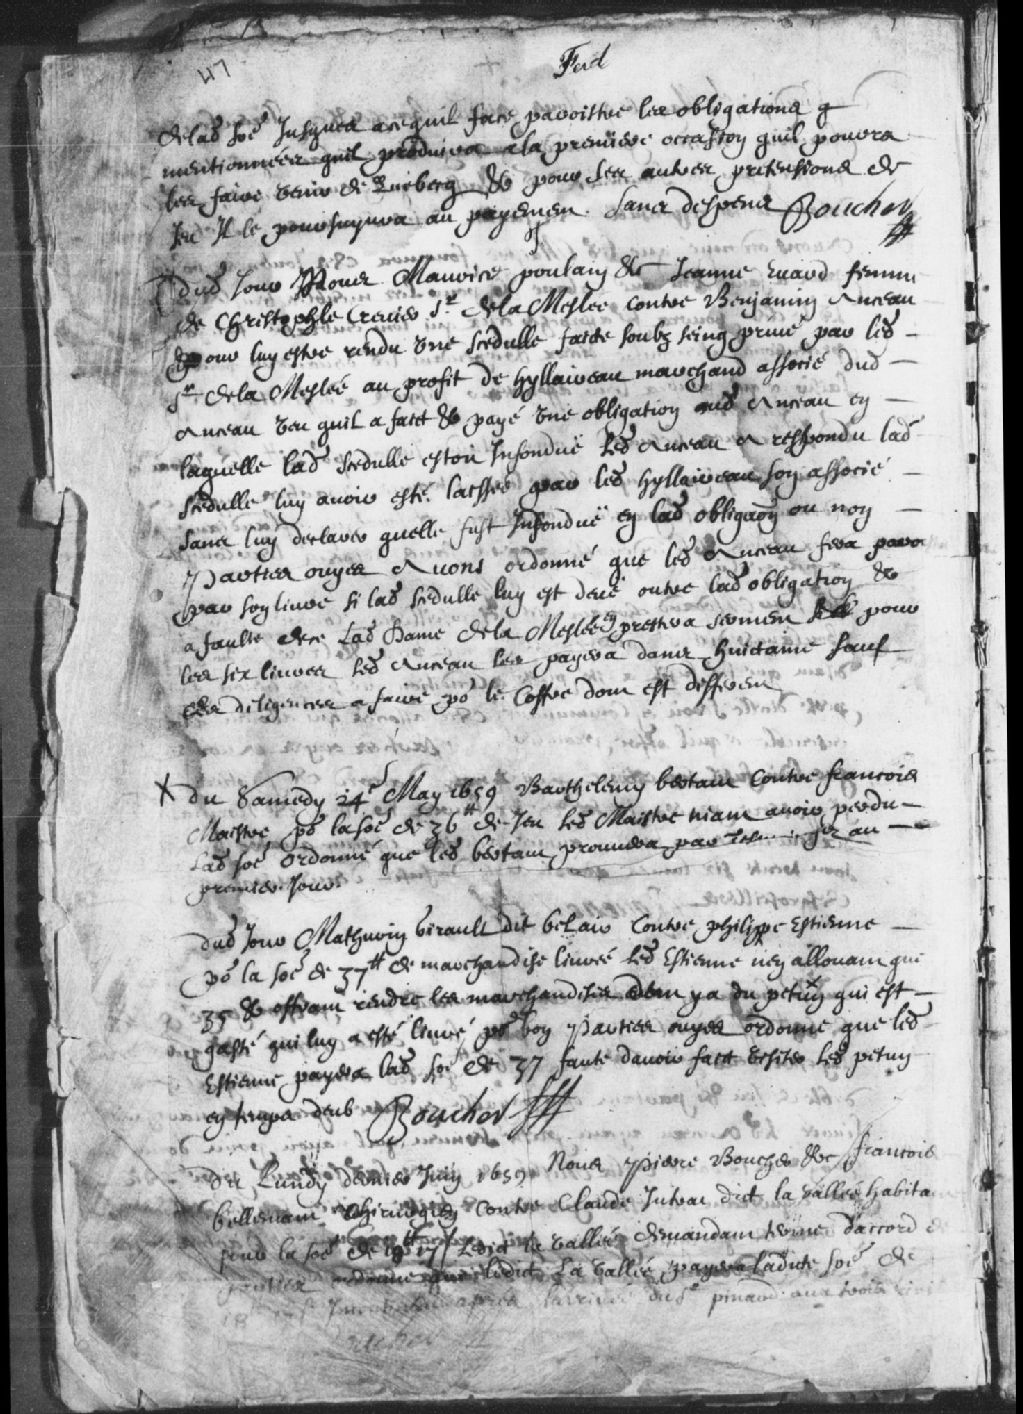 47
delad. soe Jusques a ce quil face paroittre les obligations
mentionnées quil produira a la premiere occasion quil pourra
les faire venir de Quebecq & pour les autres pretensions de
Jeu Il le poursuyvra au payemen sans despens Boucher
dud Jour Maurice poulain & Jeanne Evard femme
de Christophle Crevier Sr de la Meslee contre Benjamin Anceau
pour luy estre rendu une scedulle faicte soubz seing privé par led
Sr de la Meslée au profit de hyllaireau marchand associé dud
Anceau veu quil a faict & payé une obligation aud Anceau en
laquelle lad scedulle estoit Infondue Led Anceau a respondu lad
scedulle luy avoir esté laissée par led hyllaireau son associé
sans luy declarer quelle fust Infonduë en lad obligaon ou non
Parties ouyes Avons ordonné que led Anceau fera
par son livre si lad scedulle luy est deuë outre lad obligation &
a faulte de ce Lad Dame de la Meslée prestera sermen pour
les six livres led Anceau les payera dans huictaine sauf
les diligences a faire po le Coffre dont est differen
X du Samedy 24e May 1659 Barthelemy bertaut Contre francois
Maistre po la soe de 36# de Jeu led Maistre niant avoir perdu
Lad soe ordonné que led bertaut prouvera par au
premier Jour
dud Jour Mathurin Girault dit belair Contre philippe Estienne
po la soe de 37# de marchandise livrée led Estienne n'en allouant que
35 & offrant rendre les marchandises dont y a du petun qui est
gasté qui luy a esté livré po bon Parties ouyes ordonné que led
Estienne payera lad soe de 37 faute davoir faict visiter led petun
en temps deub Boucher
Du Lundy dernier Juin 1659 Nous Pierre Boucher & francois
bellenant Chirurgien Contre Claude Jutrat dict la vallée habita
pour la soe de Ledict la Vallée demandant terme daccord
parties ordonné que ledict La Vallée payera ladicte soe de
apres larrivée du Sr pinaud aux trois
Boucher